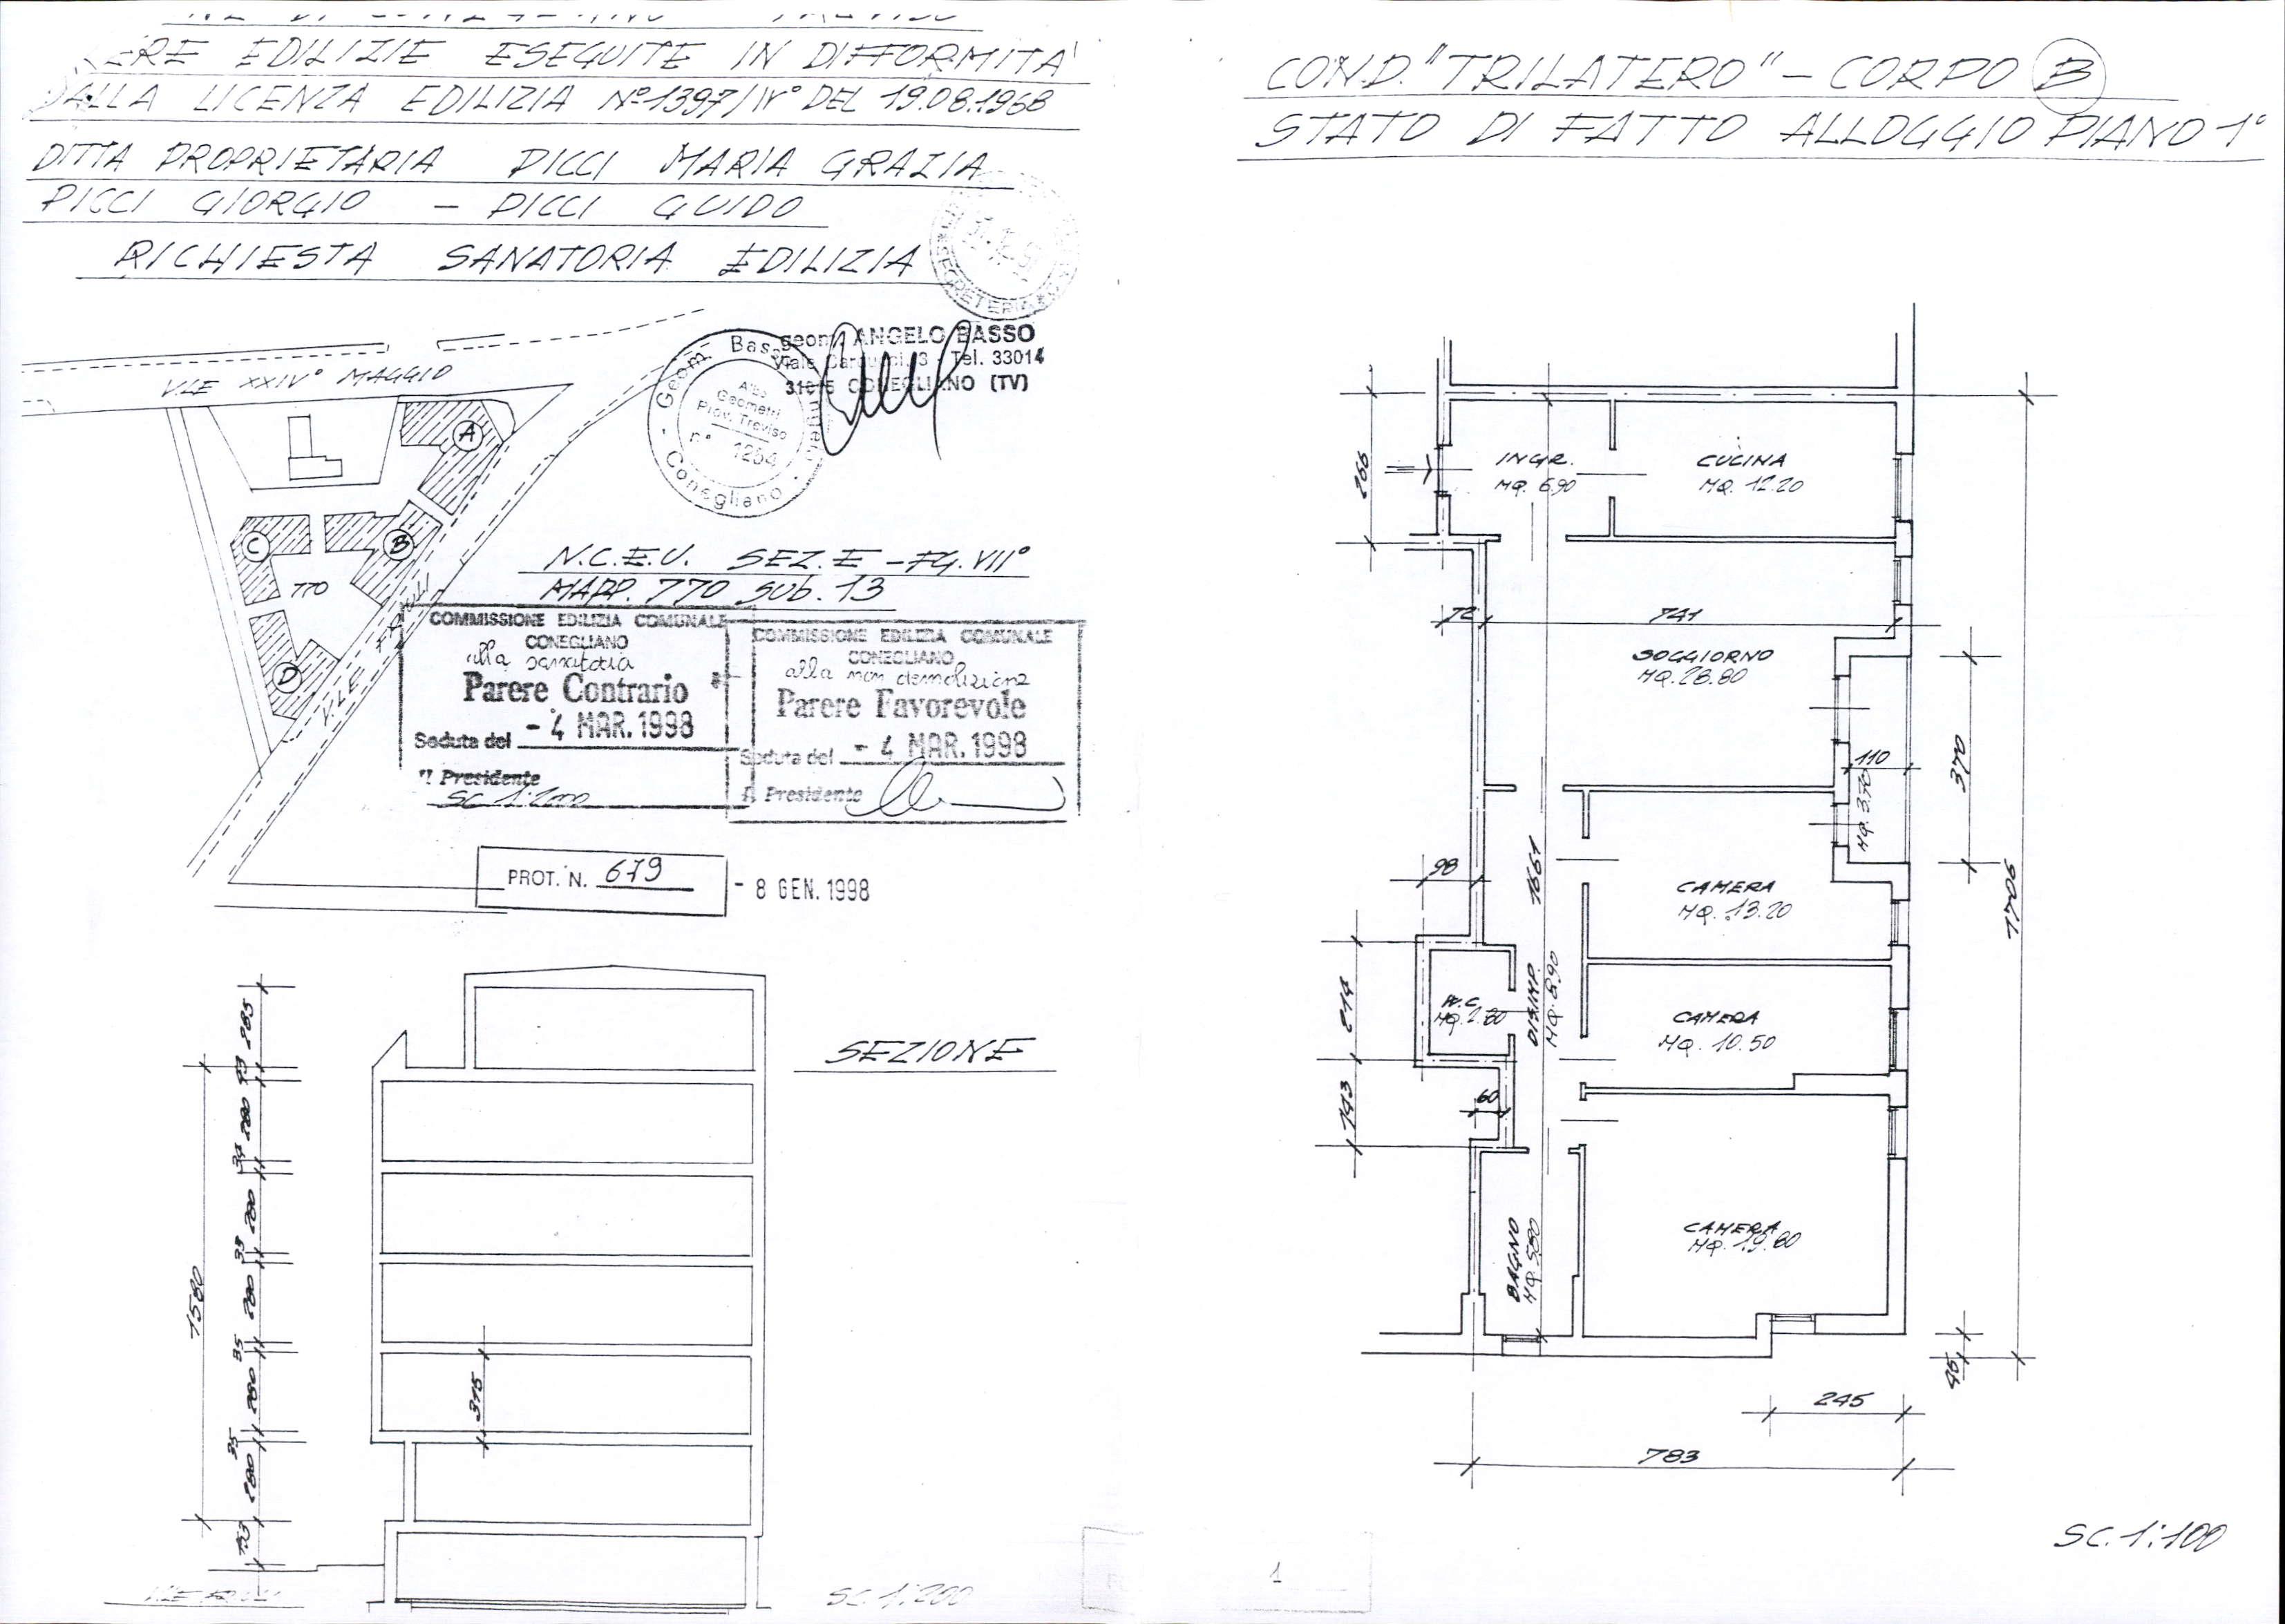 EDILIZIE ESEGUITE IN DIFFORMITA'
DALLA LICENZA EDILIZIA Nº1397/IVº DEL 19.08.1968
DITTA PROPRIETARIA PICCI MARIA GRAZIA
PICCI GIORGIO - PICCI GUIDO
RICHIESTA SANATORIA EDILIZIA
SEGRETERIA
geom. ANGELO BASSO
Viale Carducci, 3 - Tel. 33014
31015 CONEGLIANO (TV)
Geom. Basso
Albo
Geometri
Prov. Treviso
n° 1254
Conegliano
V.LE XXIVº MAGGIO
A
B
C
D
770
V.LE
N.C.E.U. SEZ. E - FG. VIIIº
MAPP. 770 SUB. 13
COMMISSIONE EDILIZIA COMUNALE
CONEGLIANO
alla sanatoria
Parere Contrario
Seduta del - 4 MAR. 1998
Il Presidente
SC. 1:2000
COMMISSIONE EDILIZIA COMUNALE
CONEGLIANO
alla non demolizione
Parere Favorevole
Seduta del - 4 MAR. 1998
Il Presidente
PROT. N. 679
- 8 GEN. 1998
SEZIONE
285
280
34
280
33
280
35
280
35
280
1580
315
SC. 1:200
COND. "TRILATERO" - CORPO B
STATO DI FATTO ALLOGGIO PIANO 1º
266
INGR.
MQ. 6.90
CUCINA
MQ. 12.20
72
741
SOGGIORNO
MQ. 28.80
110
MQ. 3.70
370
1706
98
1661
CAMERA
MQ. 13.20
214
W.C.
MQ. 2.80
DISIMP.
MQ. 8.90
CAMERA
MQ. 10.50
143
60
BAGNO
MQ. 5.80
CAMERA
MQ. 19.80
45
245
783
SC. 1:100
1